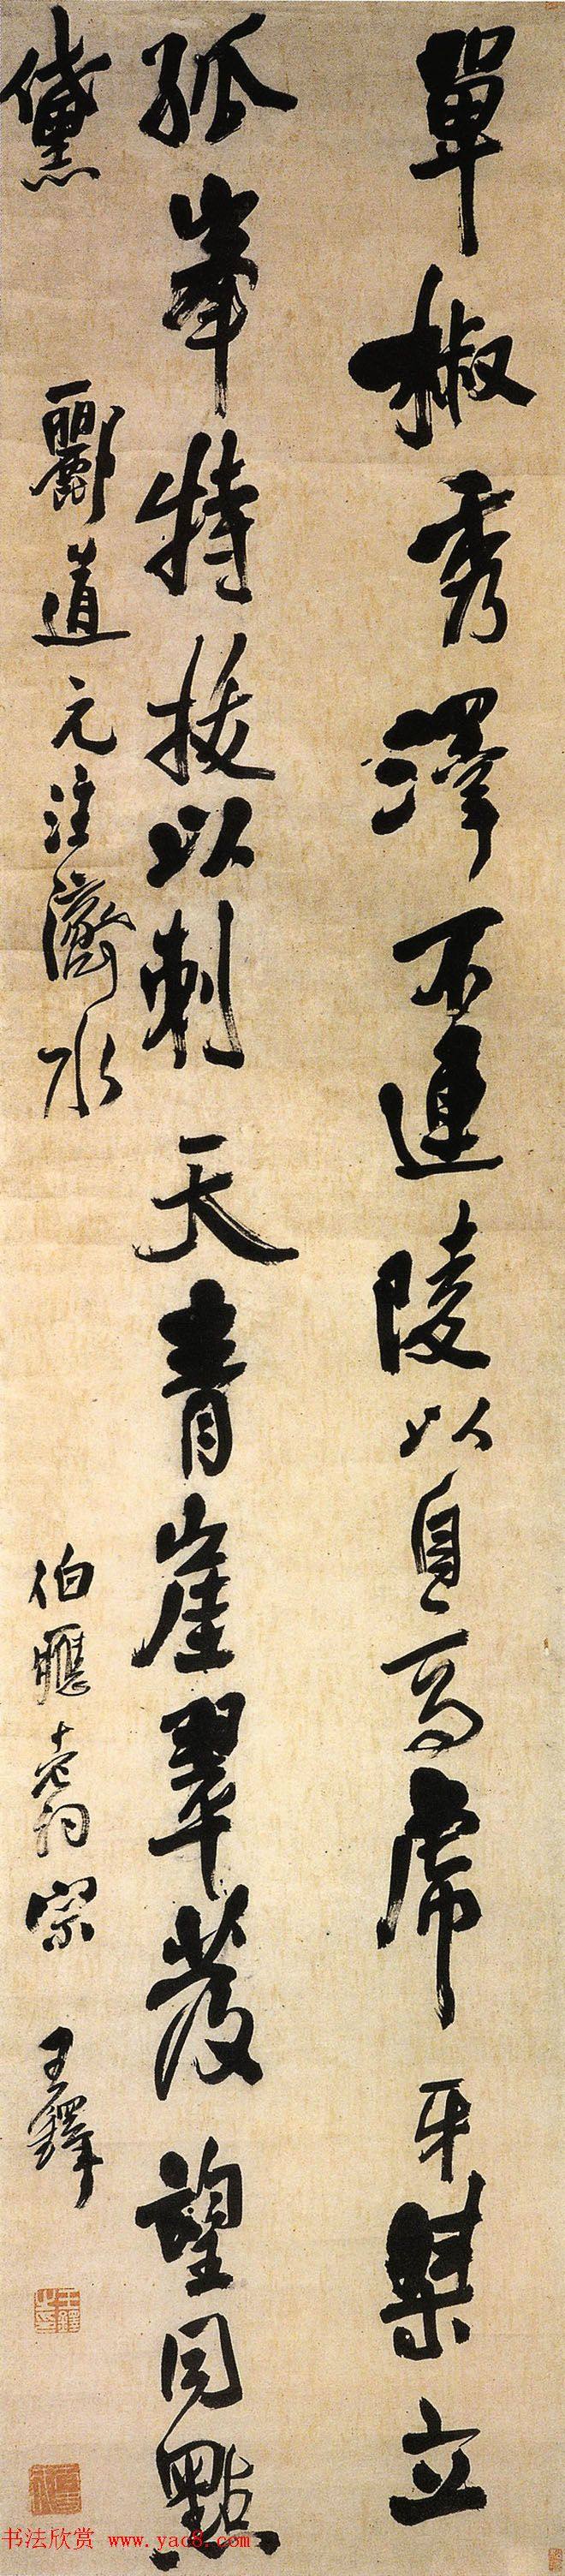 單椒秀澤不連陵以自高虎牙桀立
孤峯特拔以刺天青崖翠發望同點
黛 酈道元注濟水 伯應老詞宗 王鐸
王鐸之印
书法欣赏 www.yac8.com